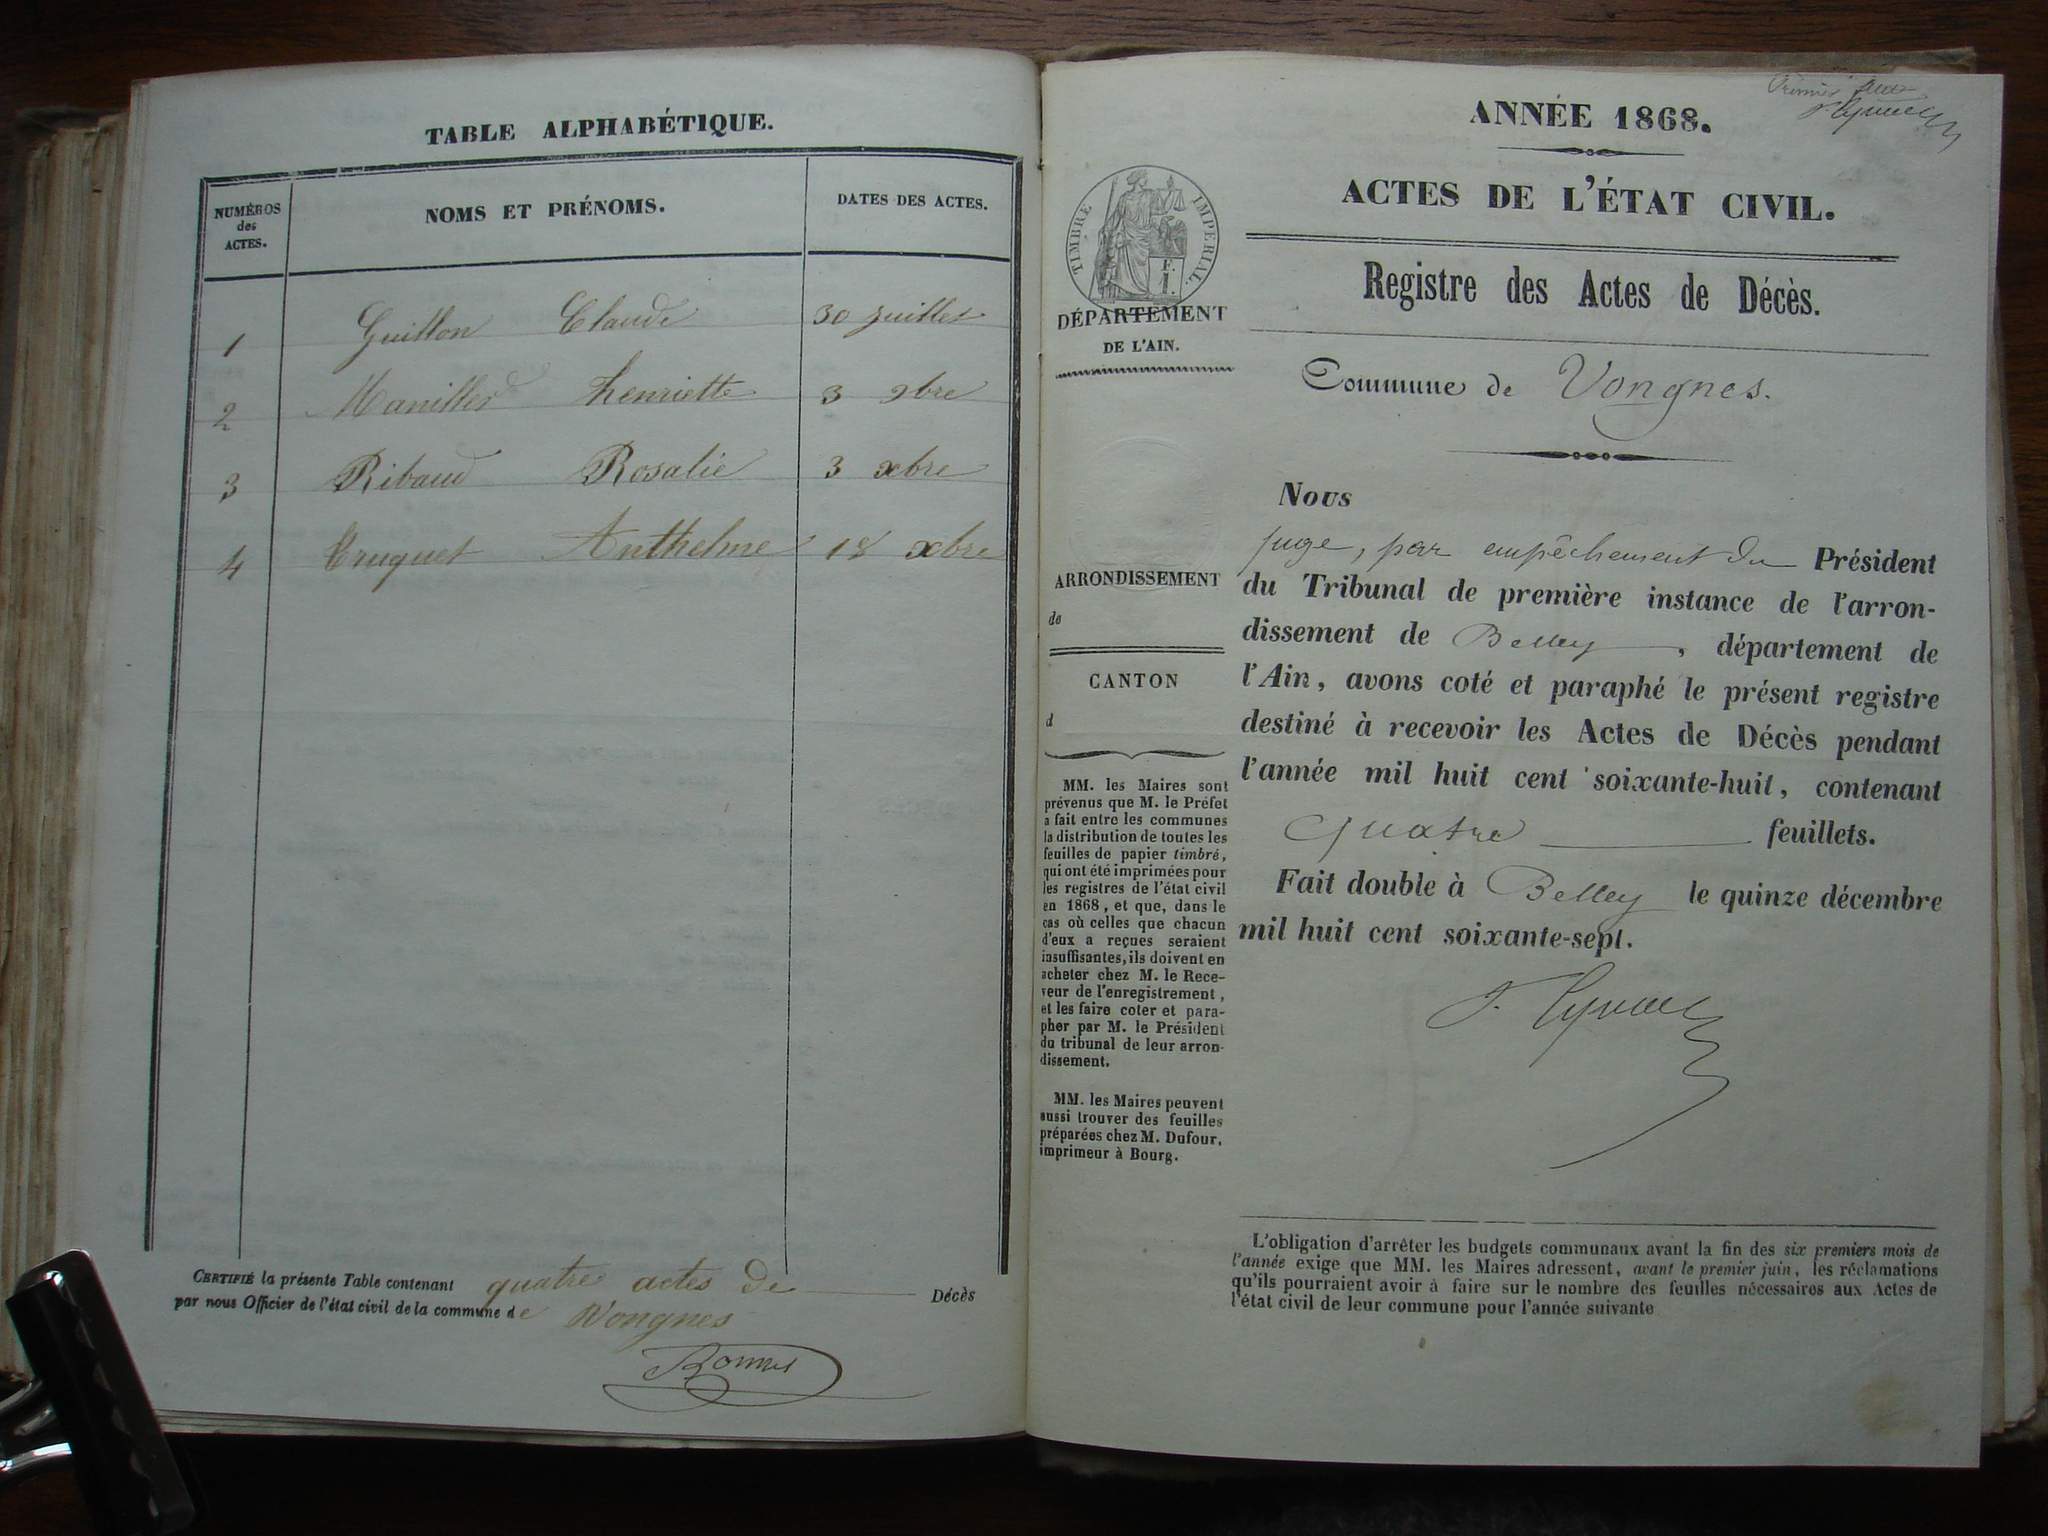 TABLE ALPHABÉTIQUE.
NUMÉROS
des
ACTES.
NOMS ET PRÉNOMS.
DATES DES ACTES.
1 Guillon Claude 30 juillet
2 henriette 3 9bre
3 Ribaud Rosalie 3 xbre
4 Truquet Anthelme 18 xbre
CERTIFIÉ la présente Table contenant quatre actes de Décès
par nous Officier de l'état civil de la commune de Vongnes
Bonnet
ANNÉE 1868.
ACTES DE L'ÉTAT CIVIL.
TIMBRE IMPERIAL.
F.
1.
DÉPARTEMENT
DE L'AIN.
Registre des Actes de Décès.
Commune de Vongnes.
ARRONDISSEMENT
de
CANTON
d
MM. les Maires sont
prévenus que M. le Préfet
a fait entre les communes
la distribution de toutes les
feuilles de papier timbré,
qui ont été imprimées pour
les registres de l'état civil
en 1868, et que, dans le
cas où celles que chacun
d'eux a reçues seraient
insuffisantes, ils doivent en
acheter chez M. le Rece-
veur de l'enregistrement,
et les faire coter et para-
pher par M. le Président
du tribunal de leur arron-
dissement.
MM. les Maires peuvent
aussi trouver des feuilles
préparées chez M. Dufour,
imprimeur à Bourg.
Nous
juge, par empêchement du Président
du Tribunal de première instance de l'arron-
dissement de Belley, département de
l'Ain, avons coté et paraphé le présent registre
destiné à recevoir les Actes de Décès pendant
l'année mil huit cent soixante-huit, contenant
quatre feuillets.
Fait double à Belley le quinze décembre
mil huit cent soixante-sept.
L'obligation d'arrêter les budgets communaux avant la fin des six premiers mois de
l'année exige que MM. les Maires adressent, avant le premier juin, les réclamations
qu'ils pourraient avoir à faire sur le nombre des feuilles nécessaires aux Actes de
l'état civil de leur commune pour l'année suivante